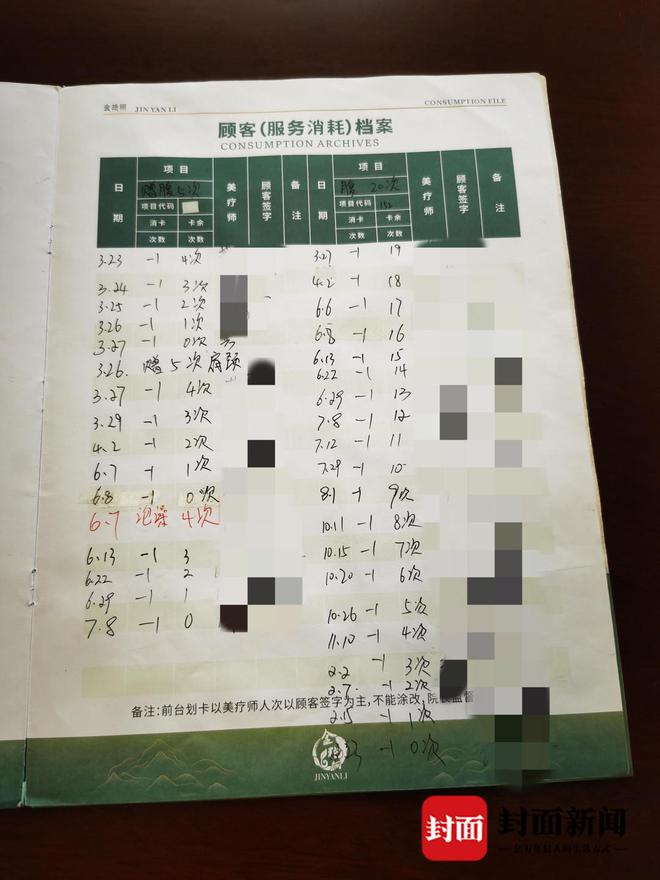 JIN YAN LI
CONSUMPTION FILE
顾客(服务消耗)档案
CONSUMPTION ARCHIVES
日期 项目 美疗师 顾客签字 备注
赠腰5次
项目代码
消卡次数 卡余次数
3.23 -1 4次
3.24 -1 3次
3.25 -1 2次
3.26 -1 1次
3.27 -1 0次
3.26. 赠5次肩颈
3.27 -1 4次
3.29 -1 3次
4.2 -1 2次
6.7 -1 1次
6.8 -1 0次
6.7 泡澡 4次
6.13 -1 3
6.22 -1 2
6.29 -1 1
7.8 -1 0
日期 项目 美疗师 顾客签字 备注
腰 20次
项目代码 152
消卡次数 卡余次数
3.27 -1 19
4.2 -1 18
6.6 -1 17
6.8 -1 16
6.13 -1 15
6.22 -1 14
6.29 -1 13
7.8 -1 12
7.12 -1 11
7.29 -1 10
8.1 -1 9次
10.11 -1 8次
10.15 -1 7次
10.20 -1 6次
10.26 -1 5次
11.10 -1 4次
2.2 -1 3次
2.7 -1 2次
2.15 -1 1次
-1 0次
备注:前台划卡以美疗师人次以顾客签字为主,不能涂改,院长监督
JINYANLI
封面
封面新闻
亿万年轻人的生活方式